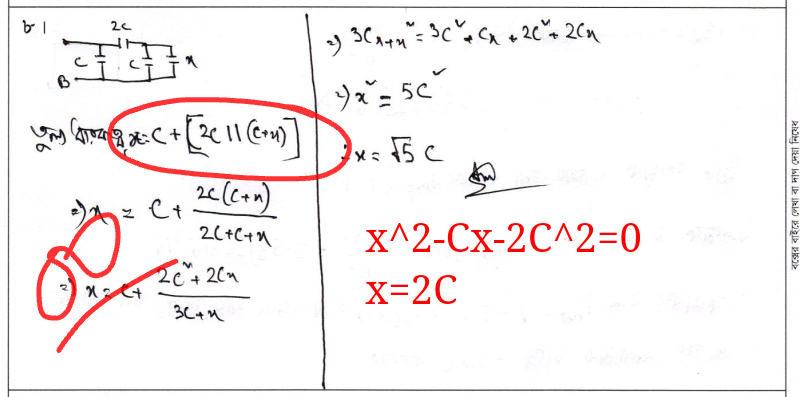 ৮।
2C
C
C
x
B
তুল্য ধারকত্ব x = C + [2C || (C+x)]
⇒ x = C + 2C(C+x) / 2C+C+x
⇒ x = C + 2C²+2Cx / 3C+x
⇒ 3Cx+x² = 3C²+Cx+2C²+2Cx
⇒ x² = 5C²
∴ x = √5 C
x^2-Cx-2C^2=0
x=2C
বক্সের বাইরে লেখা বা দাগ দেয়া নিষেধ